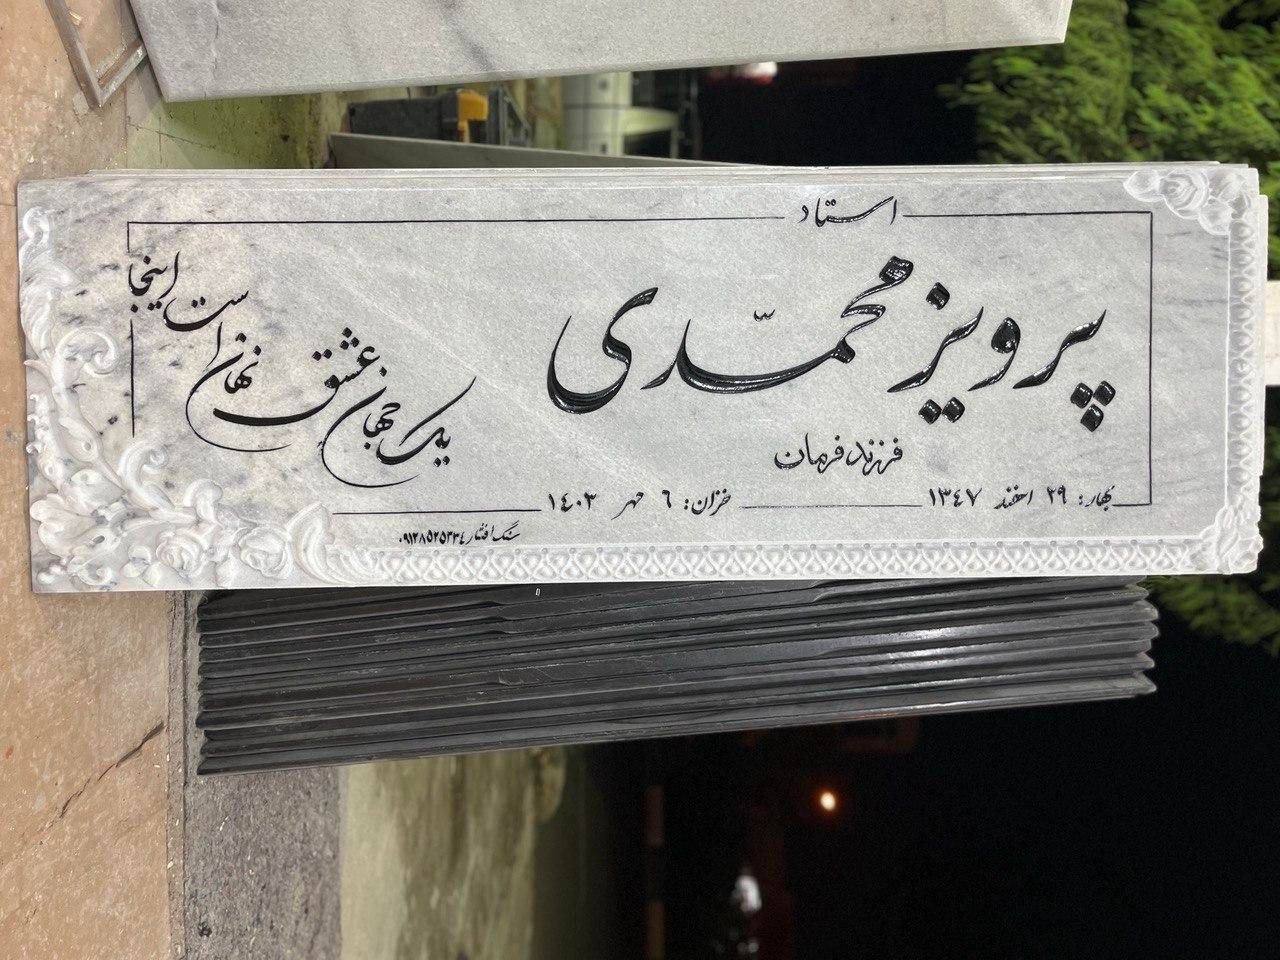 استاد
پرویز محمدی
فرزند فرمان
بهار: ۲۹ اسفند ۱۳۴۷
خزان: ۶ مهر ۱۴۰۳
یک جهان عشق نهان است اینجا
سنگ افشار ۰۹۱۲۸۵۲۵۳۳۴